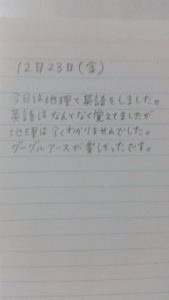 12月23日(金)
今日は地理と英語をしました。
英語はなんとなく覚えてましたが
地理は全くわかりませんでした。
グーグルアースが楽しかったです。